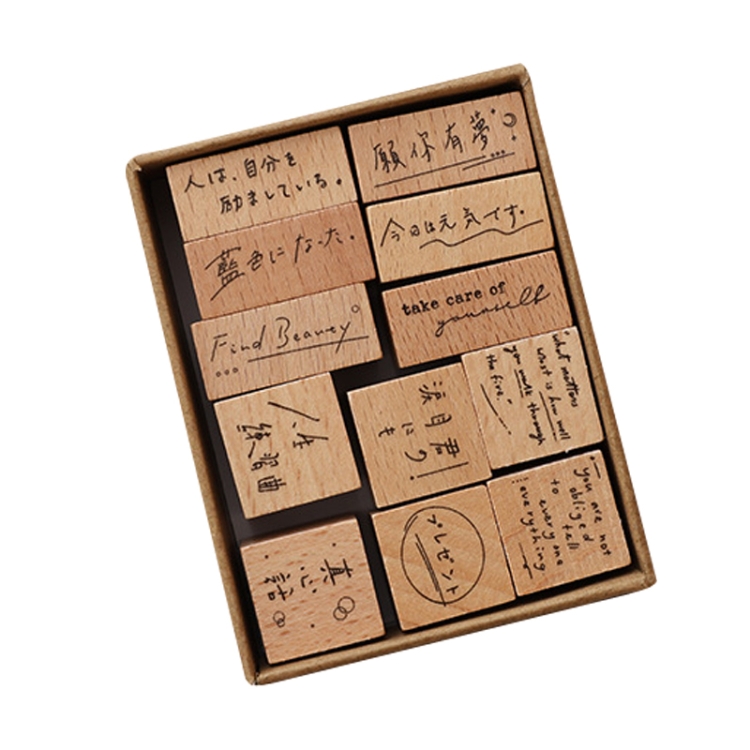 人は、自分を
励ましている。
願你有夢
藍色になった。
今日は元気です。
Find Beauty
take care of
yourself
人生
練習曲
君!
にも
"what matters
most is how well
you walk through
the fire."
真心話
プレゼント
you are not
obliged
to tell
everyone
everything